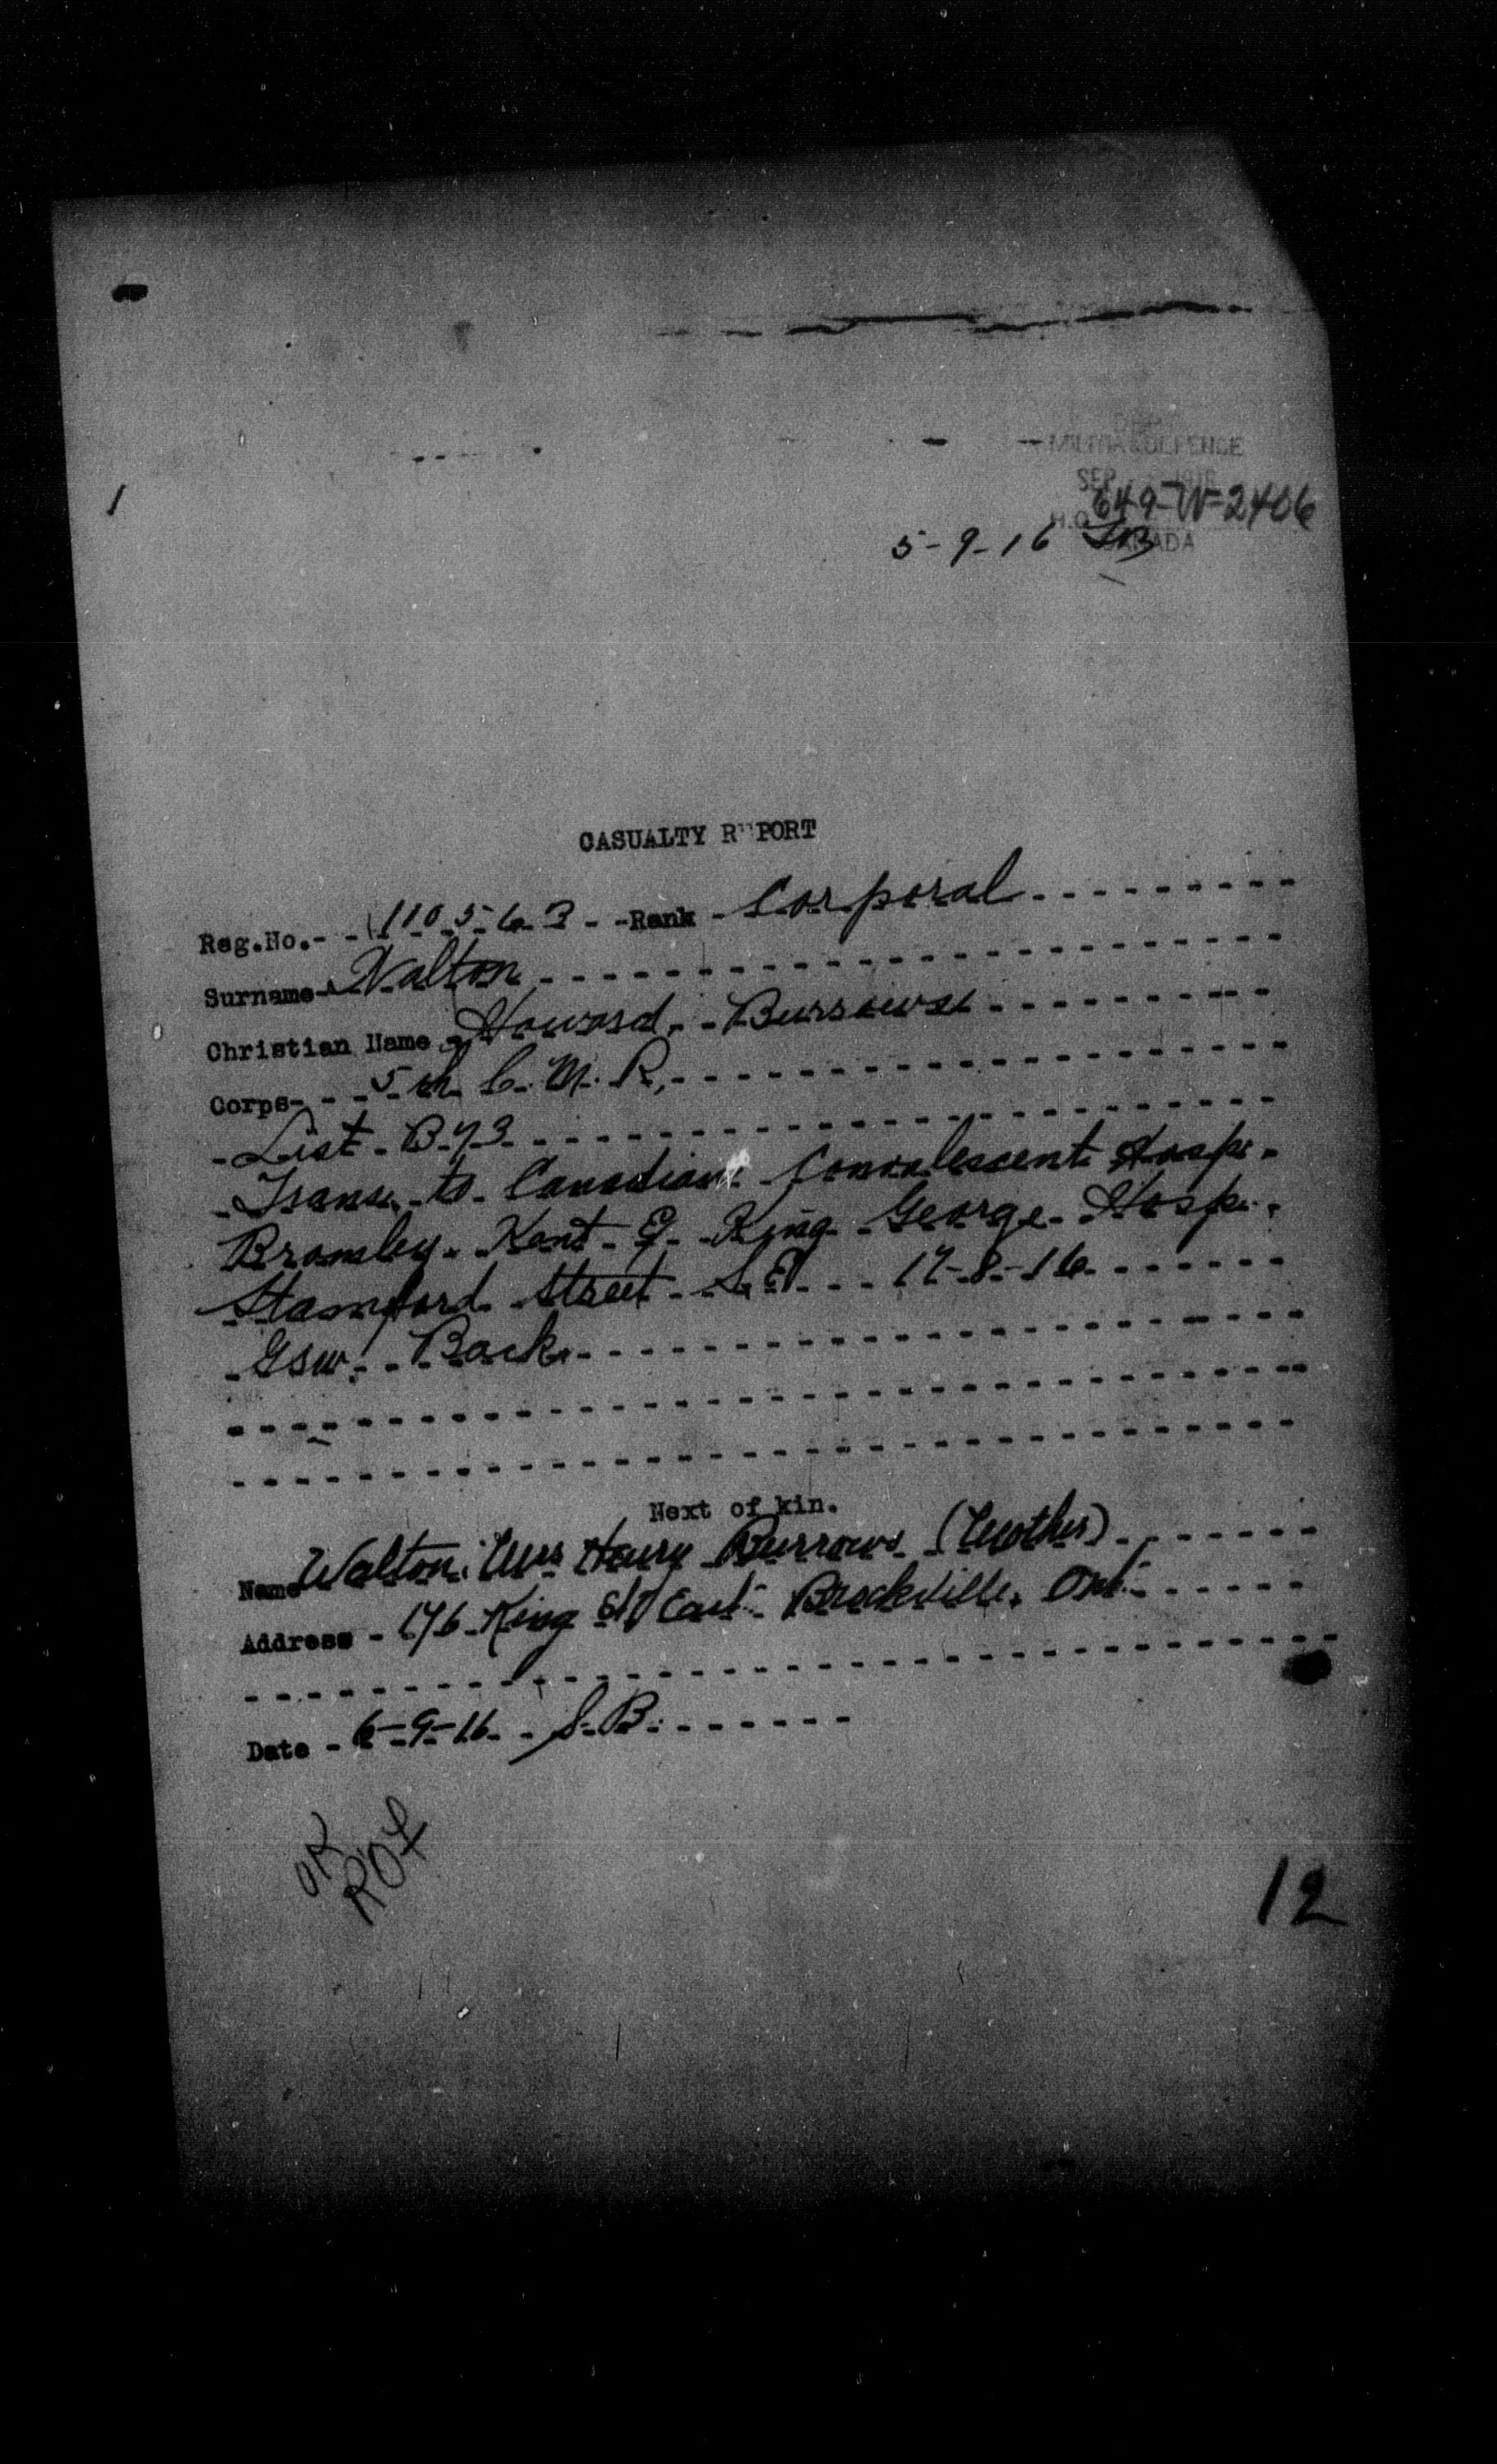 1
MILITIA & DEFENCE
SEP 1916
649-W-2406
H.Q. CANADA
5-9-16
CASUALTY REPORT
Reg.No. 110563 Rank Corporal
Surname Walton
Christian Name Howard Burrows
Corps 5th C.M.R.
List B43
Trans. to Canadian Convalescent Hosp.
Bromley Kent Ex King George Hosp.
Stamford Street S.E. 17-8-16
Gsw. Back
Next of kin.
Name Walton Mrs Henry Burrows (Mother)
Address 176 King St East Brockville, Ont.
Date 6-9-16 S.B.
OK
12